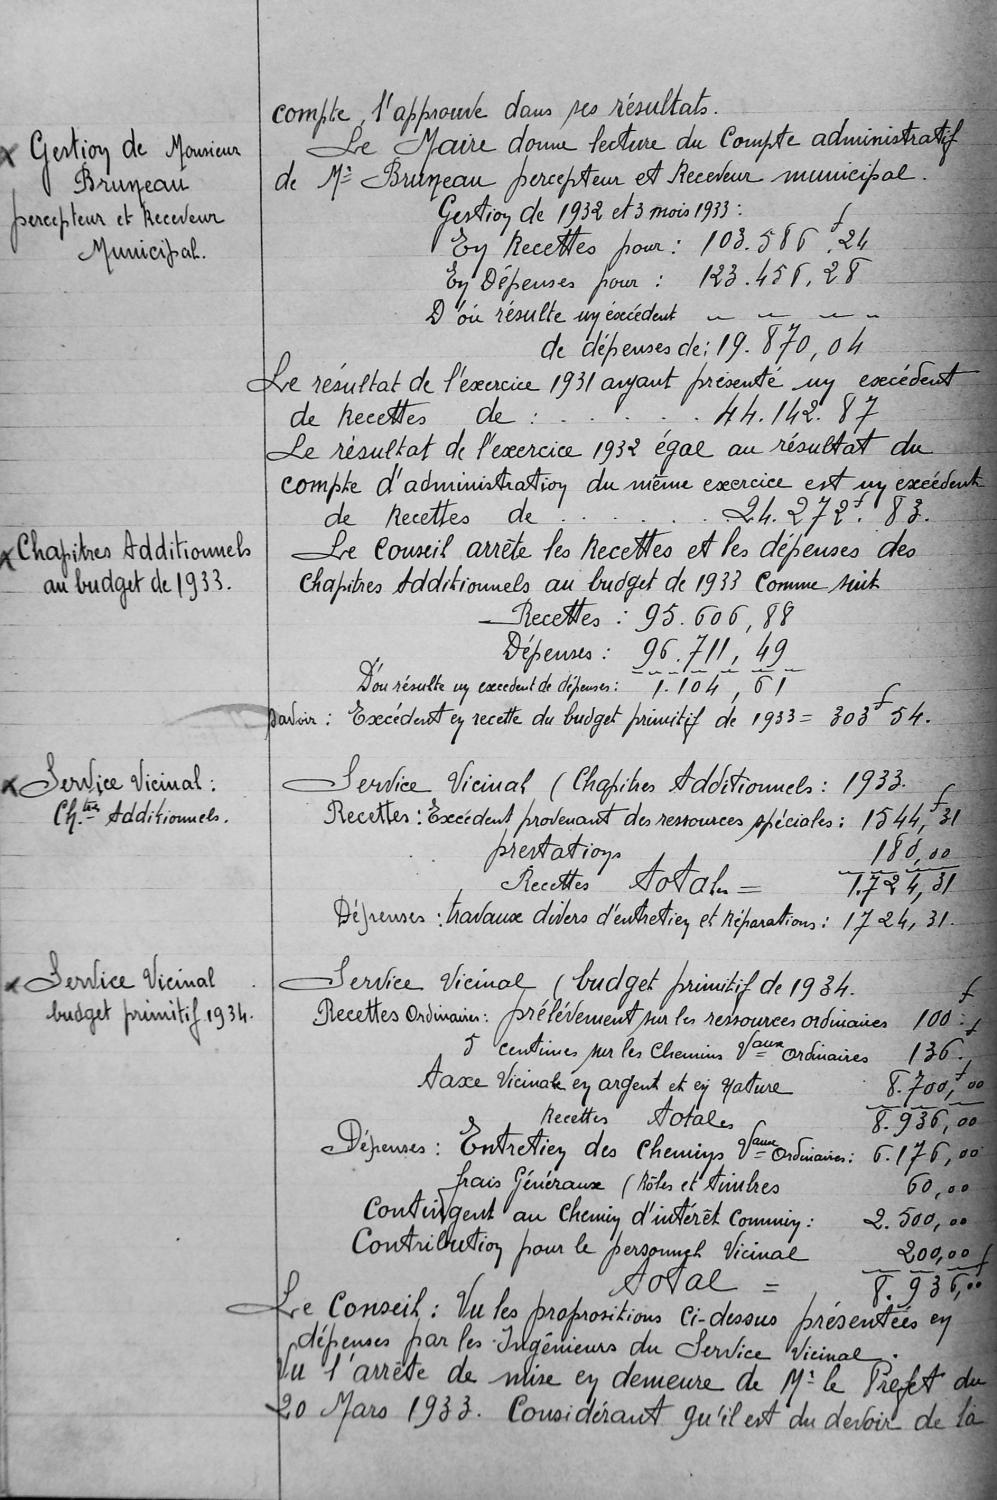 compte, l'approuve dans ses résultats.
x Gestion de Monsieur
Bruneau
percepteur et Receveur
Municipal.
Le Maire donne lecture du Compte administratif
de Mr Bruneau percepteur et Receveur municipal.
Gestion de 1932 et 3 mois 1933 :
En Recettes pour : 103.586f.24
En Dépenses pour : 123.456,28
D'où résulte un éxcédent
de dépenses de : 19.870,04
Le résultat de l'éxercice 1931 anyant présenté un excédent
de Recettes de : . . . . . . 44.142.87
Le résultat de l'exercice 1932 égal au résultat du
compte d'administration du même exercice est un excédent
de Recettes de . . . . . . . 24.272f. 83.
x Chapitres Additionnels
au budget de 1933.
Le Conseil arrête les Recettes et les dépenses des
Chapitres Additionnels au budget de 1933 Comme suit
Recettes : 95.606,88
Dépenses : 96.711,49
D'où résulte un excedent de dépenses : 1.104,61
savoir : Excédent en recette du budget primitif de 1933 = 303f 54.
x Service Vicinal :
Ch.tres Additionnels.
Service Vicinal ( Chapitres Additionnels : 1933.
Recettes : Excédent provenant des ressources spéciales : 1544,f31
prestations 180,00
Recettes totales = 1.724,31
Dépenses : travaux divers d'entretien et Réparations : 1724,31.
x Service Vicinal
budget primitif 1934.
Service Vicinal ( budget primitif de 1934.
Recettes Ordinaires : prélèvement sur les ressources ordinaires 100.f
5 centimes sur les Chemins Vaux Ordinaires 136.f
taxe Vicinale en argent et en nature 8.700,f00
Recettes totales 8.936,00
Dépenses : Entretien des Chemins Vaux Ordinaires : 6.176,00
frais Généraux ( Rôles et timbres 60,00
Contingent au Chemin d'intérêt Commun : 2.500,00
Contribution pour le personnel Vicinal 200,00
total = 8.936,f00
Le Conseil : Vu les propositions Ci-dessus présentées en
dépenses par les Ingénieurs du Service Vicinal.
Vu l'arrête de mise en demeure de Mr le Préfet du
20 Mars 1933. Considérant qu'il est du devoir de la